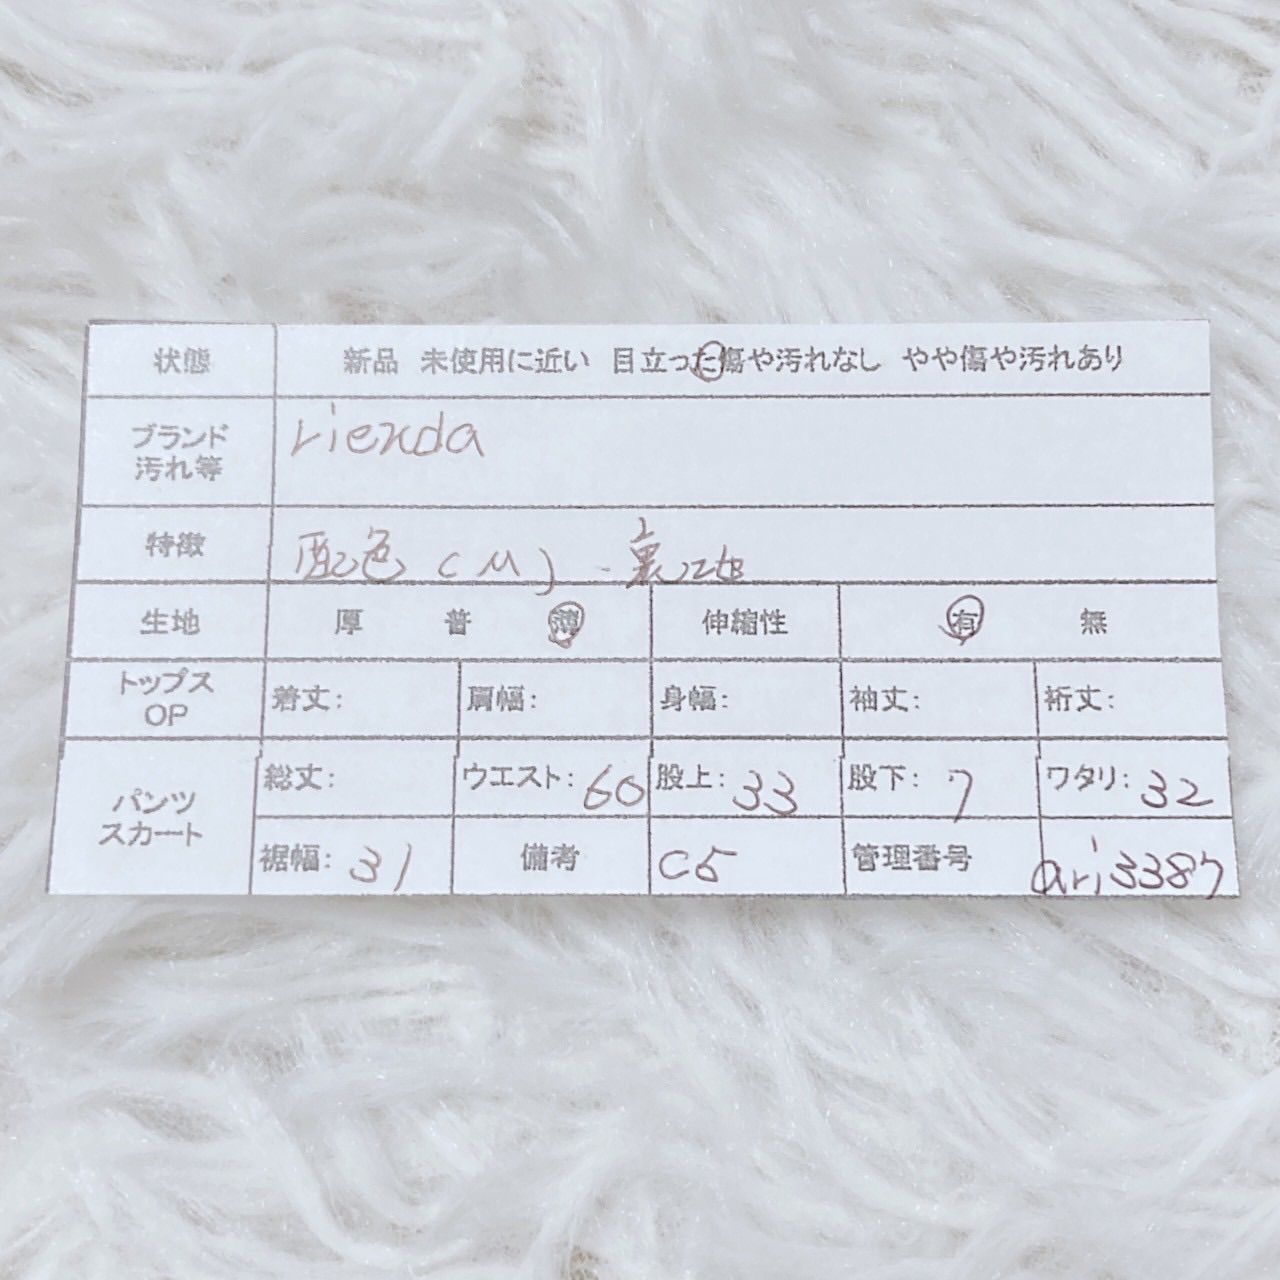 状態 新品 未使用に近い 目立った傷や汚れなし やや傷や汚れあり
ブランド 
汚れ等
rienda
特徴 配色(M)・裏地
生地 厚 普 薄 伸縮性 有 無
トップス
OP
着丈: 肩幅: 身幅: 袖丈: 裄丈:
パンツ
スカート
総丈: ウエスト: 60 股上: 33 股下: 7 ワタリ: 32
裾幅: 31 備考 C5 管理番号 ari3387